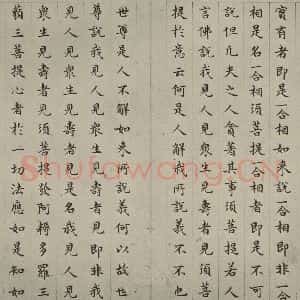 實有者即是一合相如來說一合
相是名一合相須菩提一合相者即是不可
說但凡夫之人貪著其事須菩提若人
言佛說我見人見眾生見壽者見須菩
提於意云何是人解我所說義不不也
世尊是人不解如來所說義何以故世
尊說我見人見眾生見壽者見即非我
見人見眾生見壽者見是名我見人見
眾生見壽者見須菩提發阿耨多羅三
藐三菩提心者於一切法應如是知如
Shufawang.CN